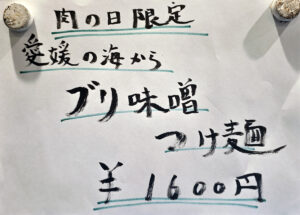 肉の日限定
愛媛の海から
ブリ味噌
つけ麺
¥1600円